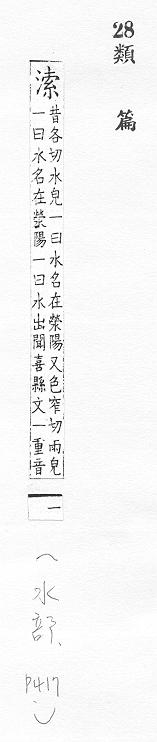 28類　篇
溹
昔各切水皃一曰水名在滎陽又色窄切雨皃
一曰水名在滎陽一曰水出聞喜縣文一重音
一
（水部、P417）